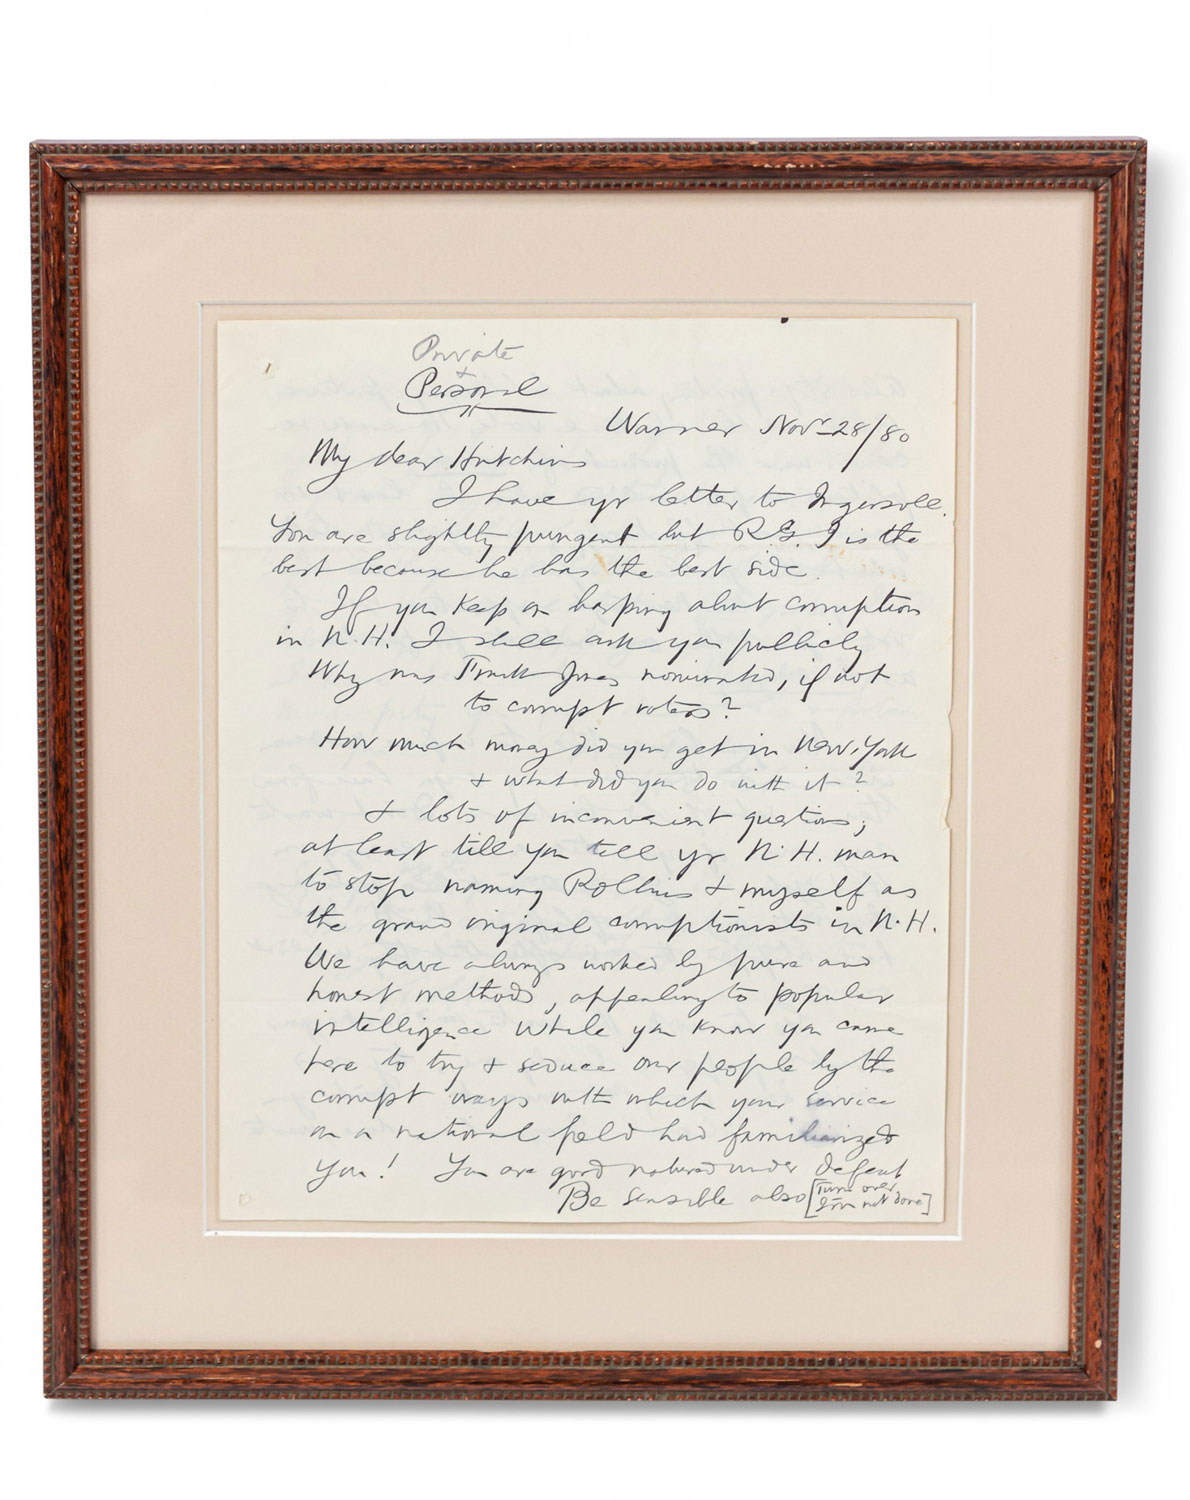 Private
+
Personal
Warner Novr 28/80
My dear Hutchins
I have yr letter to Ingersoll.
You are slightly pungent but R.G.I is the
best because he has the best side.
If you keep on harping about corruption
in N.H. I shall ask you publicly
Why was Frank Jones nominated, if not
to corrupt voters?
How much money did you get in New York
+ what did you do with it?
+ lots of inconvenient questions;
at least till you tell yr N.H. man
to stop naming Rollins + myself as
the grand original corruptionists in N.H.
We have always worked by pure and
honest methods, appealing to popular
intelligence while you know you came
here to try + seduce our people by the
corrupt ways with which your service
on a national field had familiarized
you! You are good natured under defeat
Be sensible also [Turn over
I'm not done]